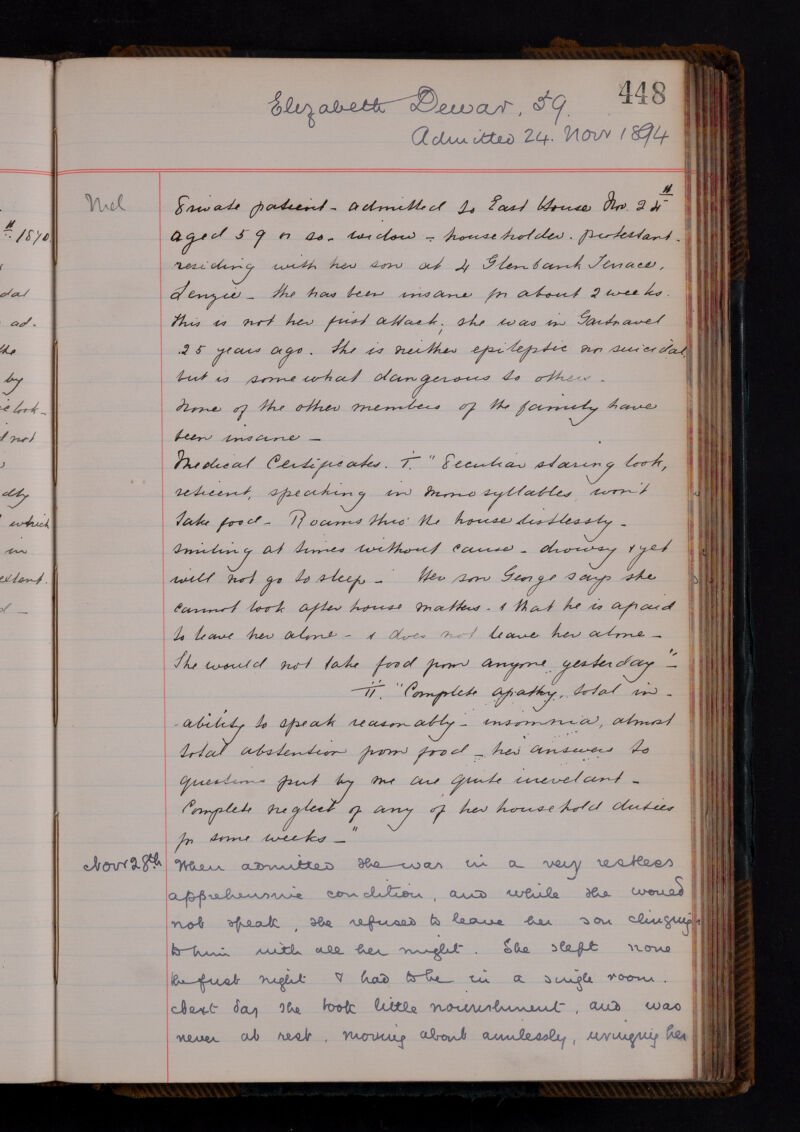 448
Elizabeth Dewar. 59.
Admitted 24. Novr 1894
Mel
Private patient - admitted to East House Nov. 24th
aged 59 or so - widow - householder. protestant.
residing with her son at 4 Glenbank Terrace,
Lenzie - She has been insane for about 2 weeks.
This is not her first attack; she was in Gartnavel
25 years ago. She is neither epileptic nor suicidal
but is somewhat dangerous to others.
None of the other members of the family have
been insane -
Medical Certificates. I. "Peculiar staring look,
reticent, speaking in monosyllables, won't
take food - Roams thro' the house listlessly -
smiling at times without cause - drowsy & yet
will not go to sleep - Her son George says she
cannot look after house matters - & that he is afraid
to leave her alone - & does not leave her alone -
She would not take food from anyone yesterday" -
II. "Complete apathy, total in-
-ability to speak reasonably - insomnia, almost
total abstention from food - her answers to
questions put by me are quite irrevelant -
Complete neglect of any of her household duties
for some weeks -"
Novr 28th
When admitted she was in a very restless
apprehensive condition, and while she would
not speak, she refused to leave her son clinging
to him with all her might. She slept none
the first night & had to be in a single room.
Next day she took little nourishment, and was
never at rest, moving about aimlessly, wringing her
th 1870
dal
ad-
the
by
look-
not
dly
which
in
extent.